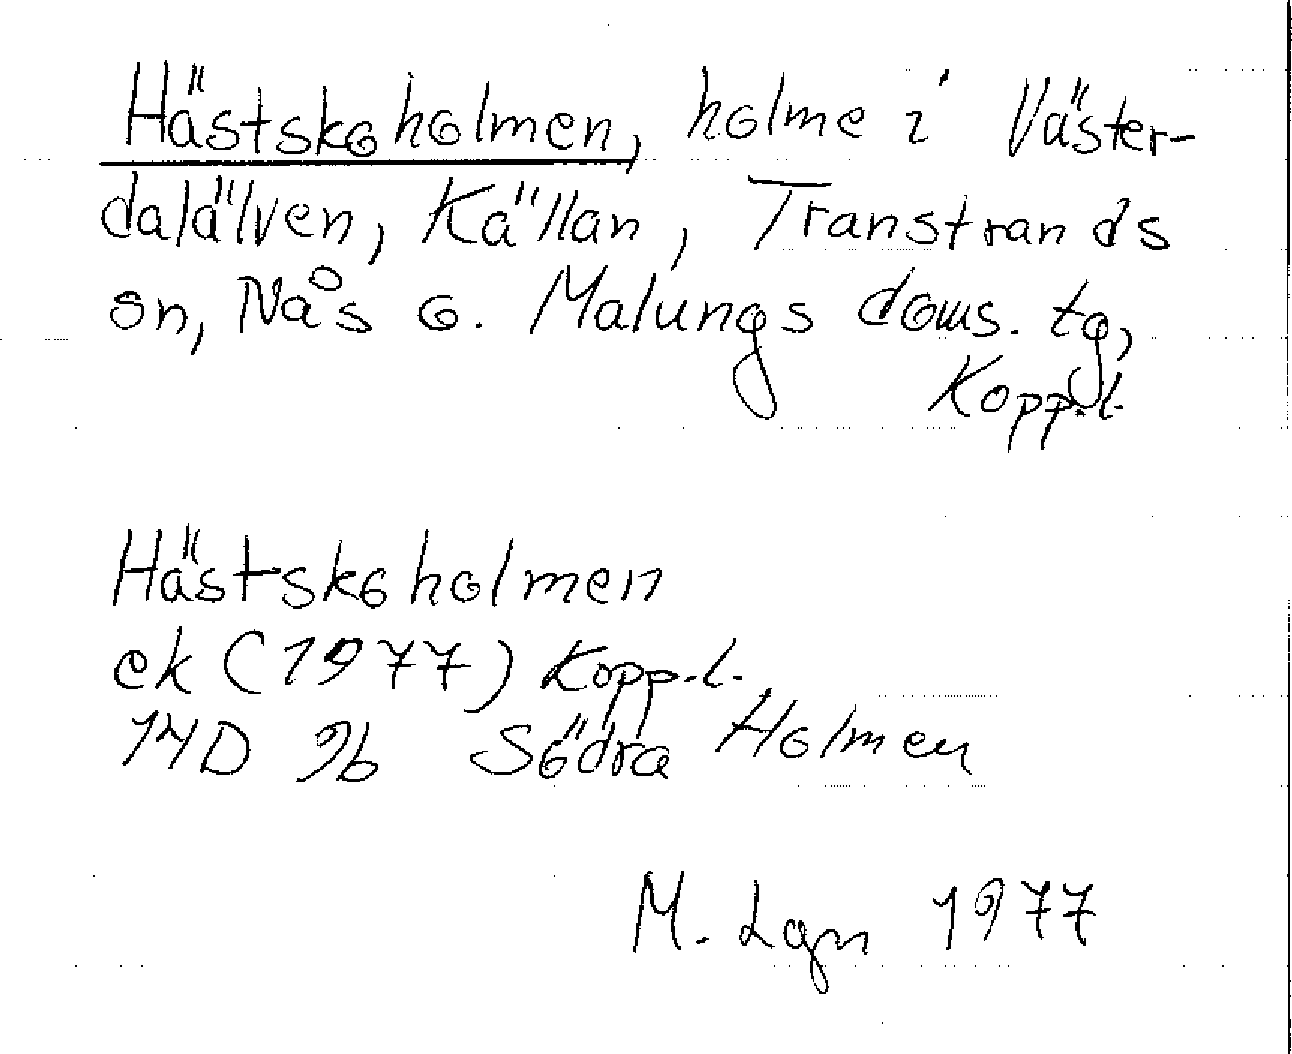 Hästskoholmen, holme i Väster-
dalälven, Källan, Transtrands
sn, Nås o. Malungs doms. tg,
Kopp.l.
Hästskoholmen
ek (1977) Kopp.l.
14D 9b Södra Holmen
M. Lgn 1977